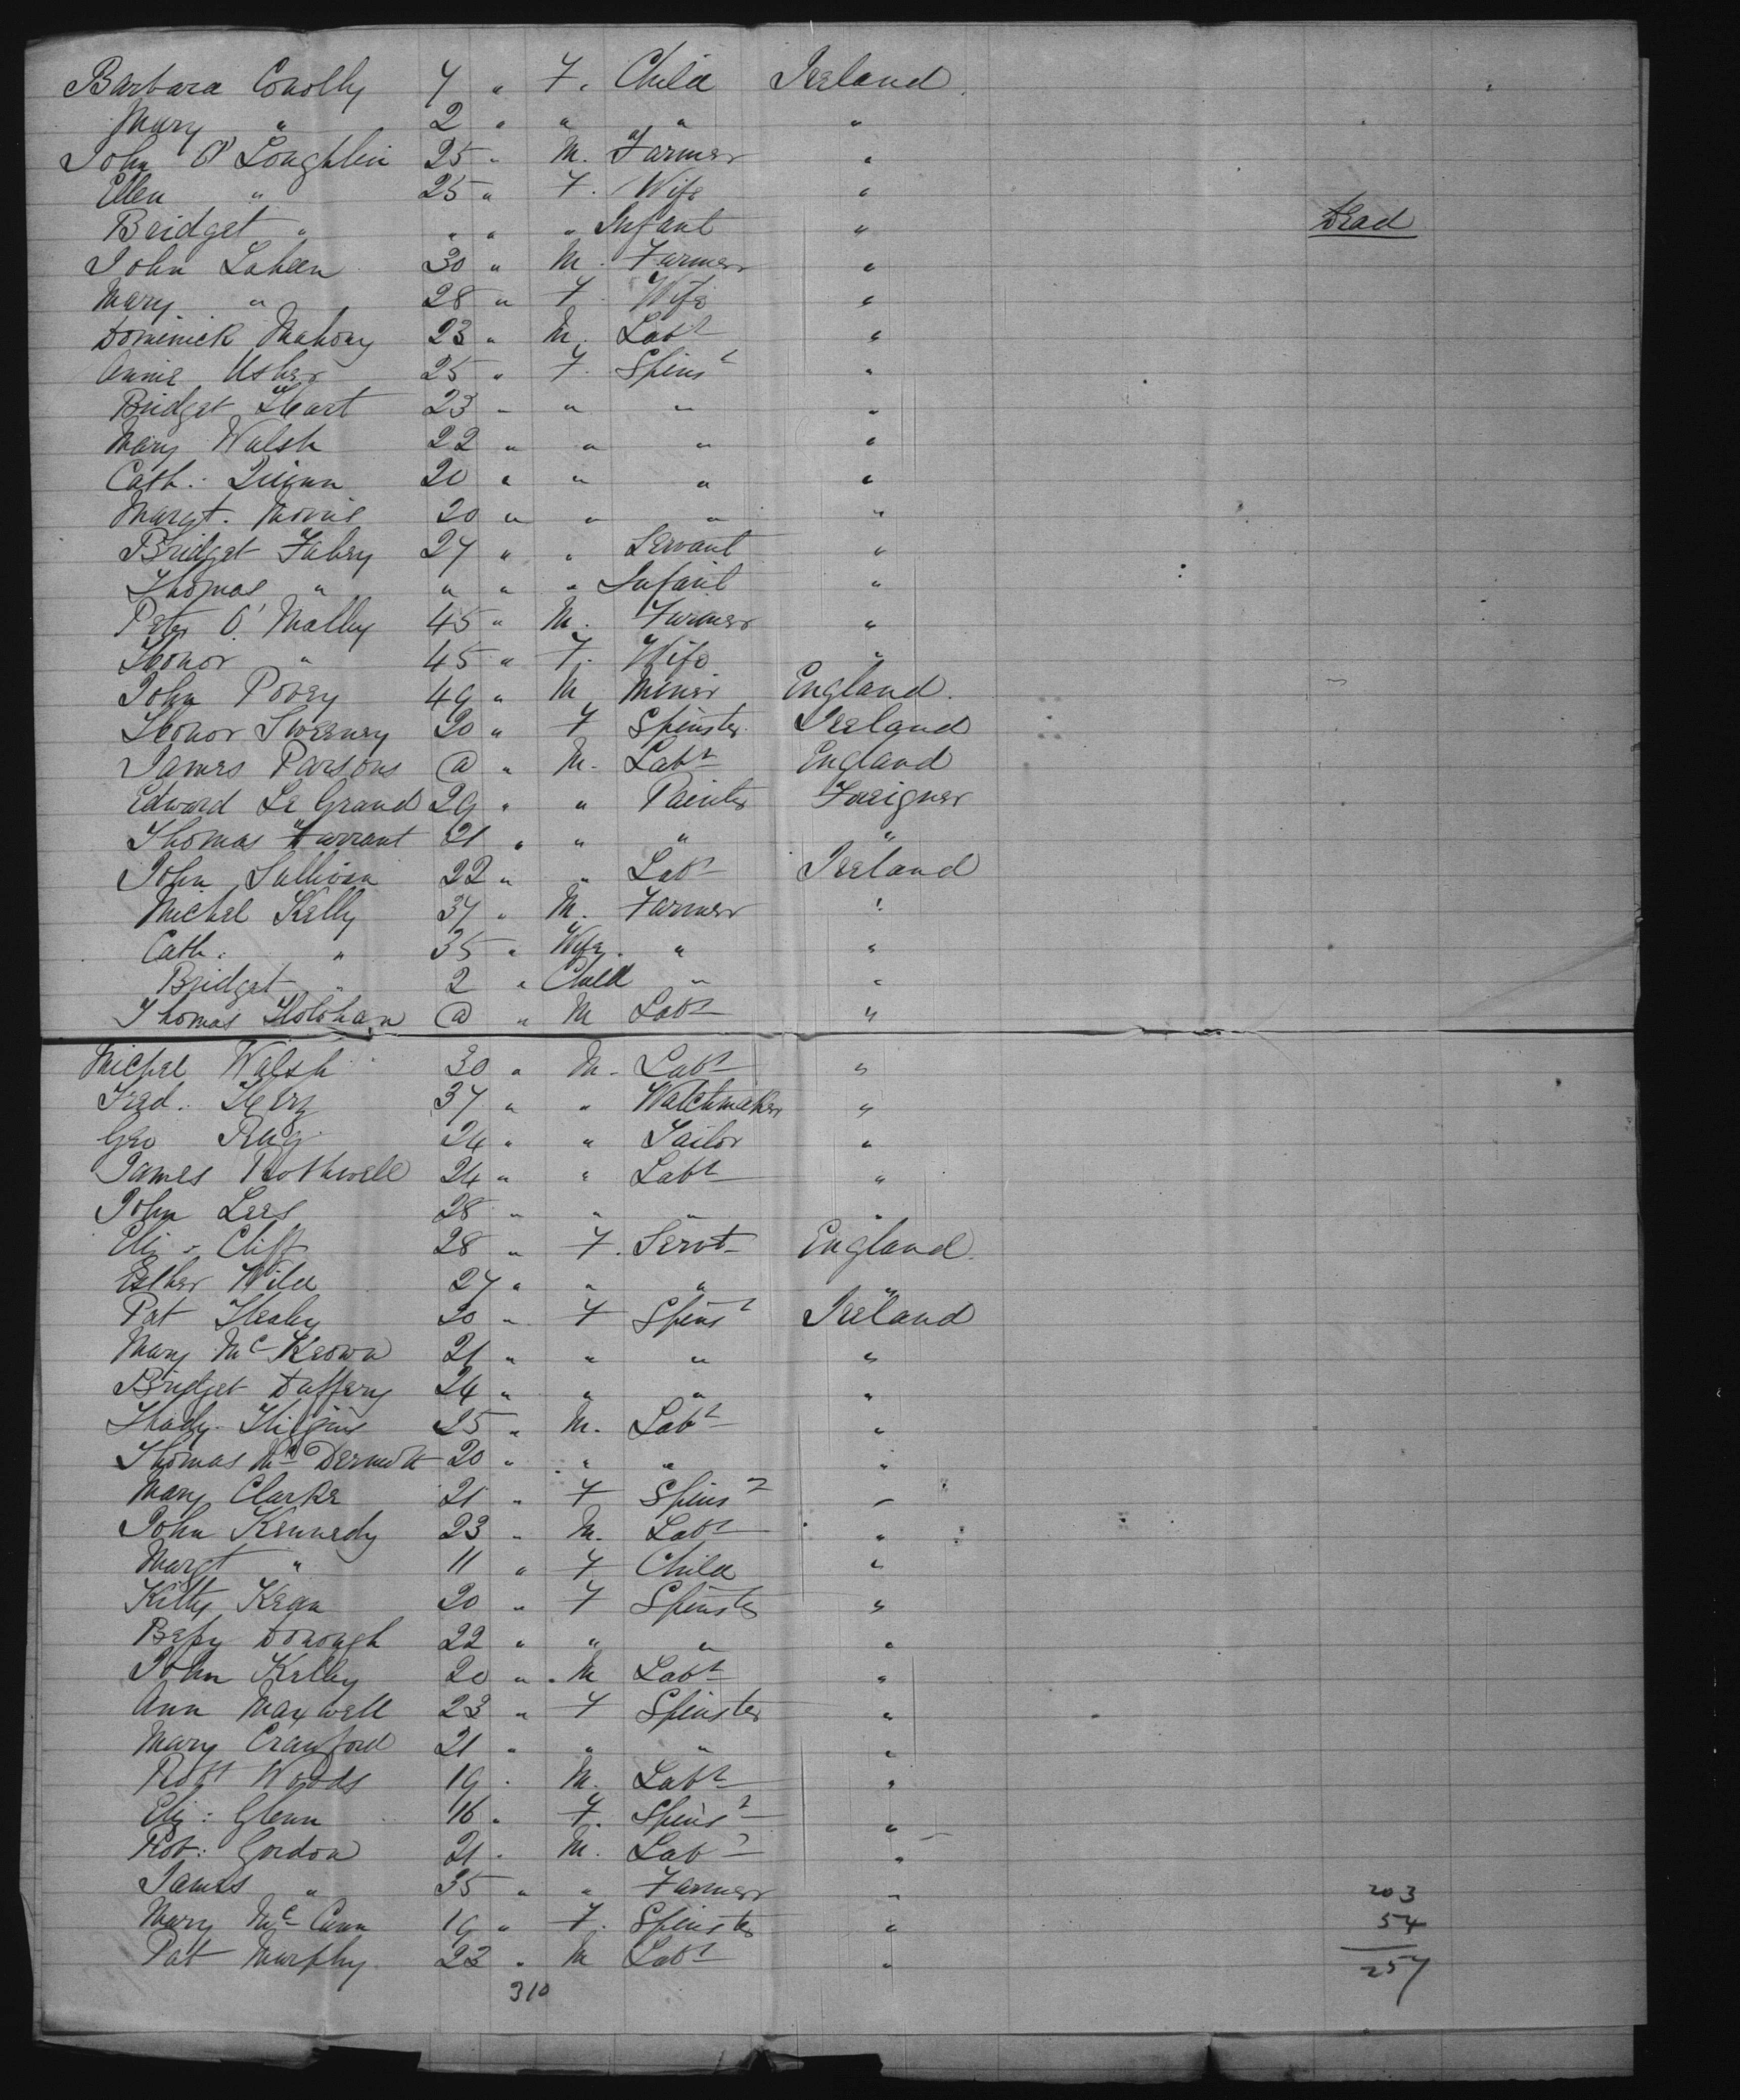 Barbara Conolly 7 " F. Child Ireland.
Mary " 2 " " " "
John O'Loughlin 25 " M. Farmer "
Ellen " 25 " F. Wife "
Bridget " " " " Infant " Dead
John Laheen 30 " M. Farmer "
Mary " 28 " F. Wife "
Dominick Mahony 23 " M. Labr "
Annie Usher 25 " F. Spinsr "
Bridget Heart 23 " " " "
Mary Walsh 22 " " " "
Cath: Quinn 20 " " " "
Margt. 20 " " " "
Bridget Fahey 27 " " Servant "
Thomas " " " " Infant "
Peter O'Malley 45 " M. Farmer "
Honor " 45 " F. Wife "
John Povey 49 " M Miner England.
Honor Sweeney 20 " F Spinster Ireland
James Parsons @ " M. Labr England
Edward Le Grand 29 " " Painter Foreigner
Thomas Farrant 21 " " " "
John Sullivan 22 " " Labr Ireland
Michel Kelly 37 " M. Farmer "
Cath: " 35 " Wife. " "
Bridget " 2 " Child " "
Thomas Holohan @ " M Labr "
Michel Walsh 30 " M. Labr "
Fred. Herz 37 " " Watchmaker "
Geo 24 " " Tailor "
James Rothwell 24 " " Labr "
John Lees 28 " " " "
Eliz - Cliff 28 " F. Servt England.
Esther Wild 27 " " " "
Pat Healey 20 " F Spinsr Ireland
Mary McKeown 21 " " " "
Bridget Daffery 24 " " " "
Thady. Higgins 25 " M. Labr "
Thomas McDermott 20 " " " "
Mary Clarke 21 " F Spinsr "
John Kennedy 23 " M. Labr "
Margt " 11 " F Child "
Kitty Kegan 20 " F Spinster "
Bessy Donough 22 " " " "
John Kelley 20 " M Labr "
Ann Maxwell 23 " F Spinster "
Mary Crawford 21 " " " "
Robt Woods 19 " M. Labr "
Eliz: Glenn 16 " F. Spinsr "
Rob: Gordon 21 " M. Labr "
James " 35 " " Farmer " 203
Mary McCann 19 " F. Spinster " 54
Pat Murphy 23 " M Labr " 257
310